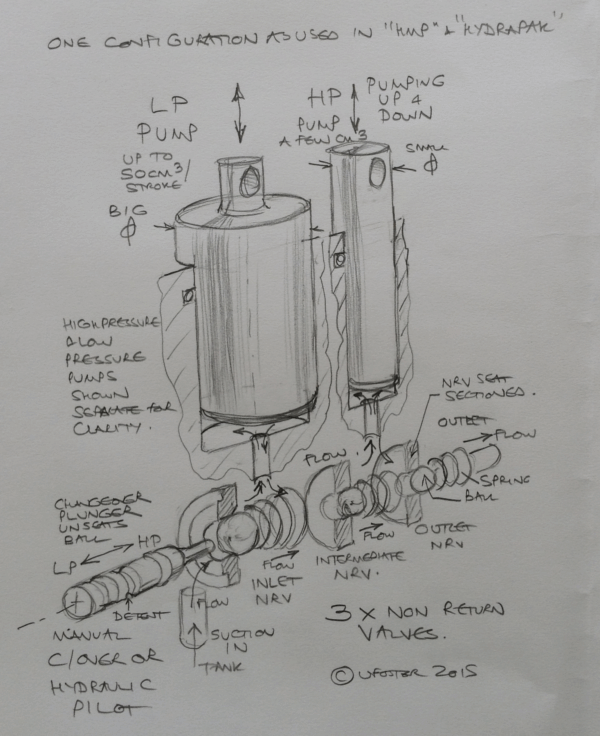 ONE CONFIGURATION AS USED IN "HMP" & "HYDRAPAK"
LP
PUMP
UP TO
50CM³/
STROKE
BIG
Φ
HP
PUMP
A FEW CM³
PUMPING
UP &
DOWN
SMALL
Φ
HIGH PRESSURE
& LOW
PRESSURE
PUMPS
SHOWN
SEPARATE FOR
CLARITY.
NRV SEAT
SECTIONED.
OUTLET
FLOW
SPRING
BALL
OUTLET
NRV
FLOW
FLOW
INTERMEDIATE
NRV.
FLOW
INLET
NRV
CHANGEOVER
PLUNGER
UNSEATS
BALL
HP
LP
DETENT
FLOW
SUCTION
IN
TANK
MANUAL
C/OVER OR
HYDRAULIC
PILOT
3 X NON RETURN
VALVES.
© UFOSTER 2015